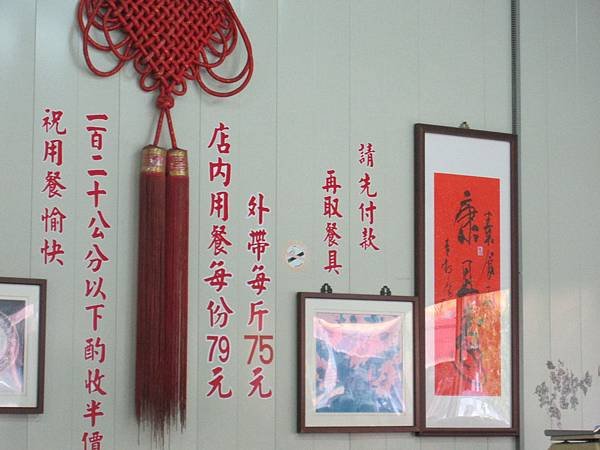 請先付款
再取餐具
外帶每斤75元
店內用餐每份79元
一百二十公分以下酌收半價
祝用餐愉快